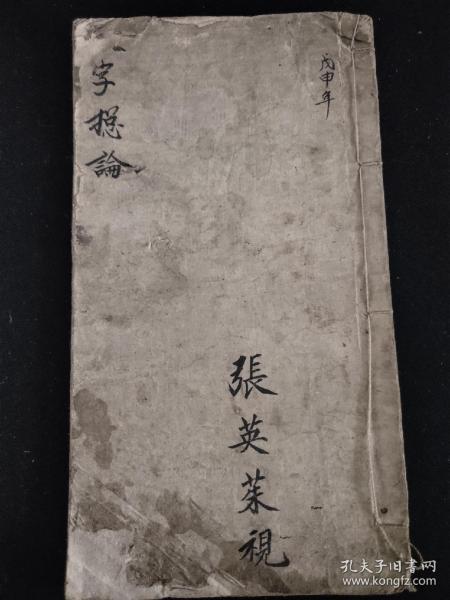 戊申年
字捴論
張英茱視
孔夫子旧书网
www.kongfz.com